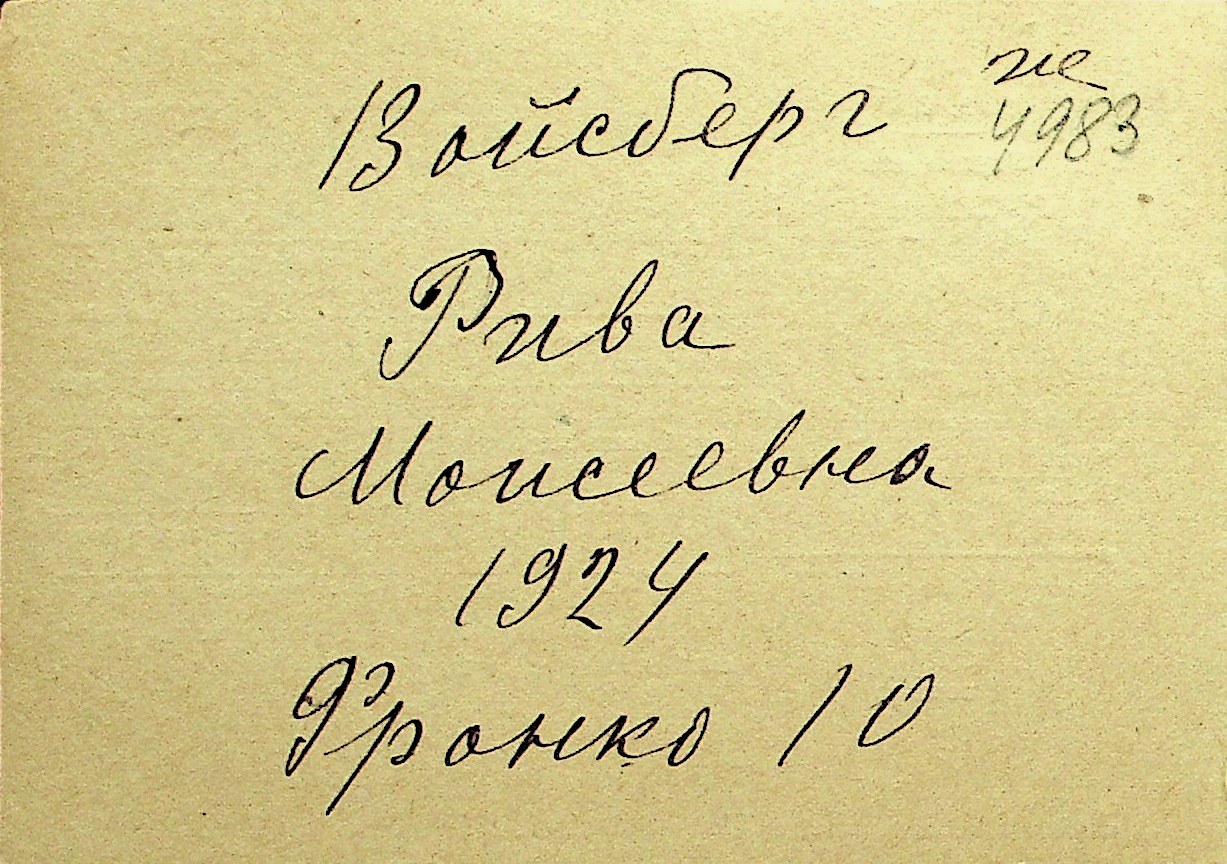 Вайсберг же
4983
Рива
Моисеевна
1924
Франко 10